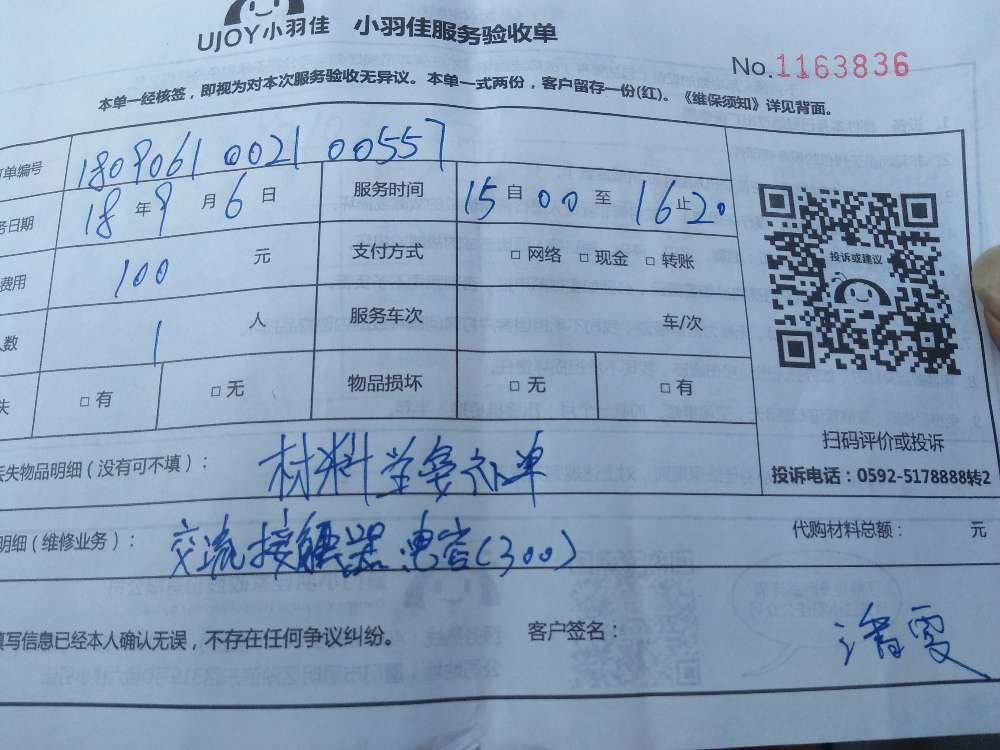 UJOY小羽佳 小羽佳服务验收单
No.1163836
本单一经核签，即视为对本次服务验收无异议。本单一式两份，客户留存一份(红)。《维保须知》详见背面。
单编号 180906100210 0557
务日期 18年9月6日 服务时间 15自00至16止20
费用 100 元 支付方式 □ 网络 □ 现金 □ 转账
人数 1 人 服务车次 车/次
失 □ 有 □ 无 物品损坏 □ 无 □ 有
投诉或建议
扫码评价或投诉
投诉电话：0592-5178888转2
丢失物品明细（没有可不填）： 材料 单
明细（维修业务）： 交流接触器 (300) 代购材料总额： 元
填写信息已经本人确认无误，不存在任何争议纠纷。 客户签名：